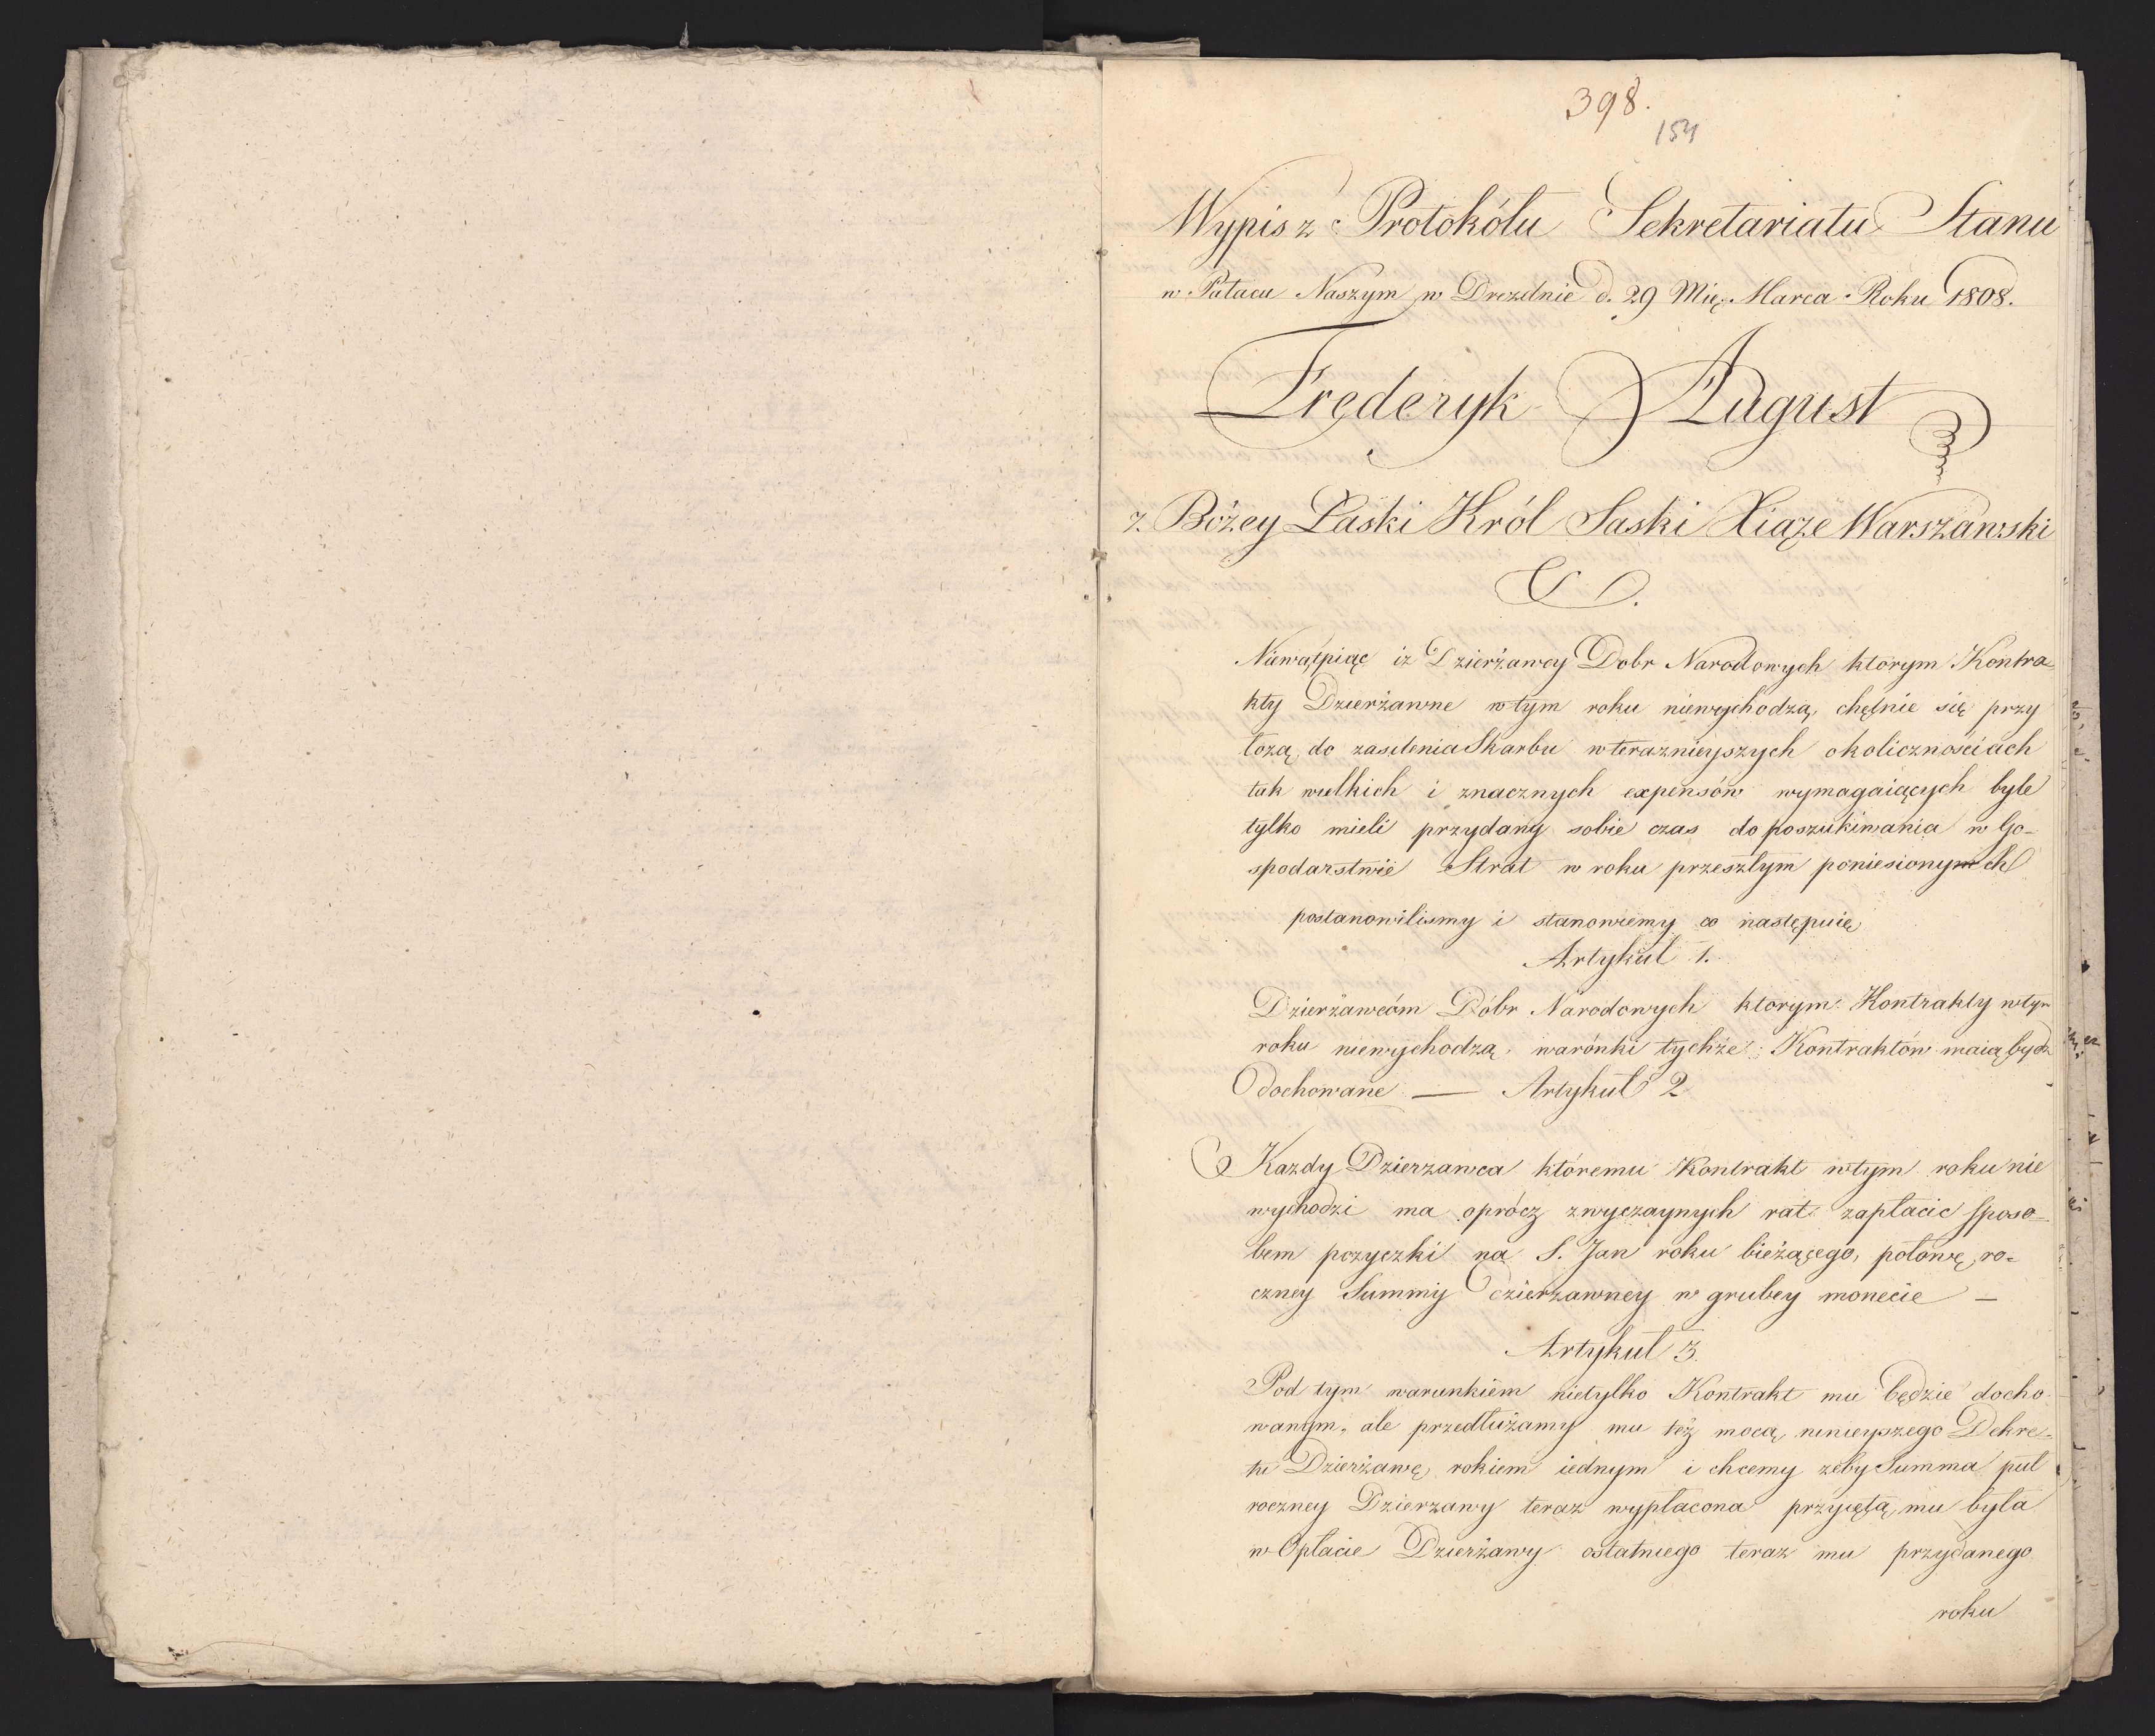 398.
154
Wypis z Protokółu Sekretariatu Stanu
w Pałacu Naszym w Dreźdnie d. 29 Mię. Marca Roku 1808.
Fręderyk August
z Bożey Łaski Król Saski Xiąże Warszawski
Niewątpiąc iż Dzierżawcy Dobr Narodowych ktorym Kontra-
kty Dzierżawne w tym roku niewychodzą, chętnie się przy
łożą do zasilenia Skarbu w teraznieyszych okolicznościach
tak wielkich i znacznych expensów wymagaiących byle
tylko mieli przydany sobie czas do poszukiwania w Go-
spodarstwie Strat w roku przeszłym poniesionych
postanowilismy i stanowiemy co następuię
Artykuł 1.
Dzierżawcóm Dóbr Narodowych ktorym Kontrakty w tym
roku niewychodzą warónki tychże Kontraktów maią bydz
dochowane — Artykuł 2
Kazdy Dzierzawca któremu Kontrakt w tym roku nie
wychodzi ma oprócz zwyczaynych rat zapłacic sposo-
bem pożyczki na S. Jan roku bieżącego, połowę ro-
czney Summy dzierzawney w grubey monecie —
Artykuł 3.
Pod tym warunkiem nietylko Kontrakt mu będzie docho-
wanym, ale przedłużamy mu też mocą ninieyszego Dekre-
tu Dzierżawę rokiem iednym i chcemy zeby Summa puł
roczney Dzierzawy teraz wypłacona przyiętą mu była
w Opłacie Dzierżawy ostatniego teraz mu przydanego
roku